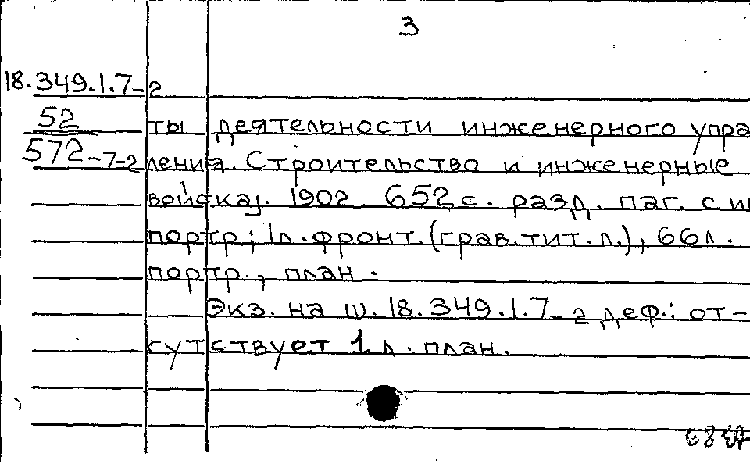 3
18.349.1.7-2
52
ты деятельности инженерного упра
572-7-2 ления. Строительство и инженерные
войска]. 1902. 652 с. разд. паг. с и
портр; 1л. фронт. (грав. тит. л.), 66л.
портр., план.
Экз. на ш. 18.349.1.7-2 деф.: от-
сутствует 1 л. план.